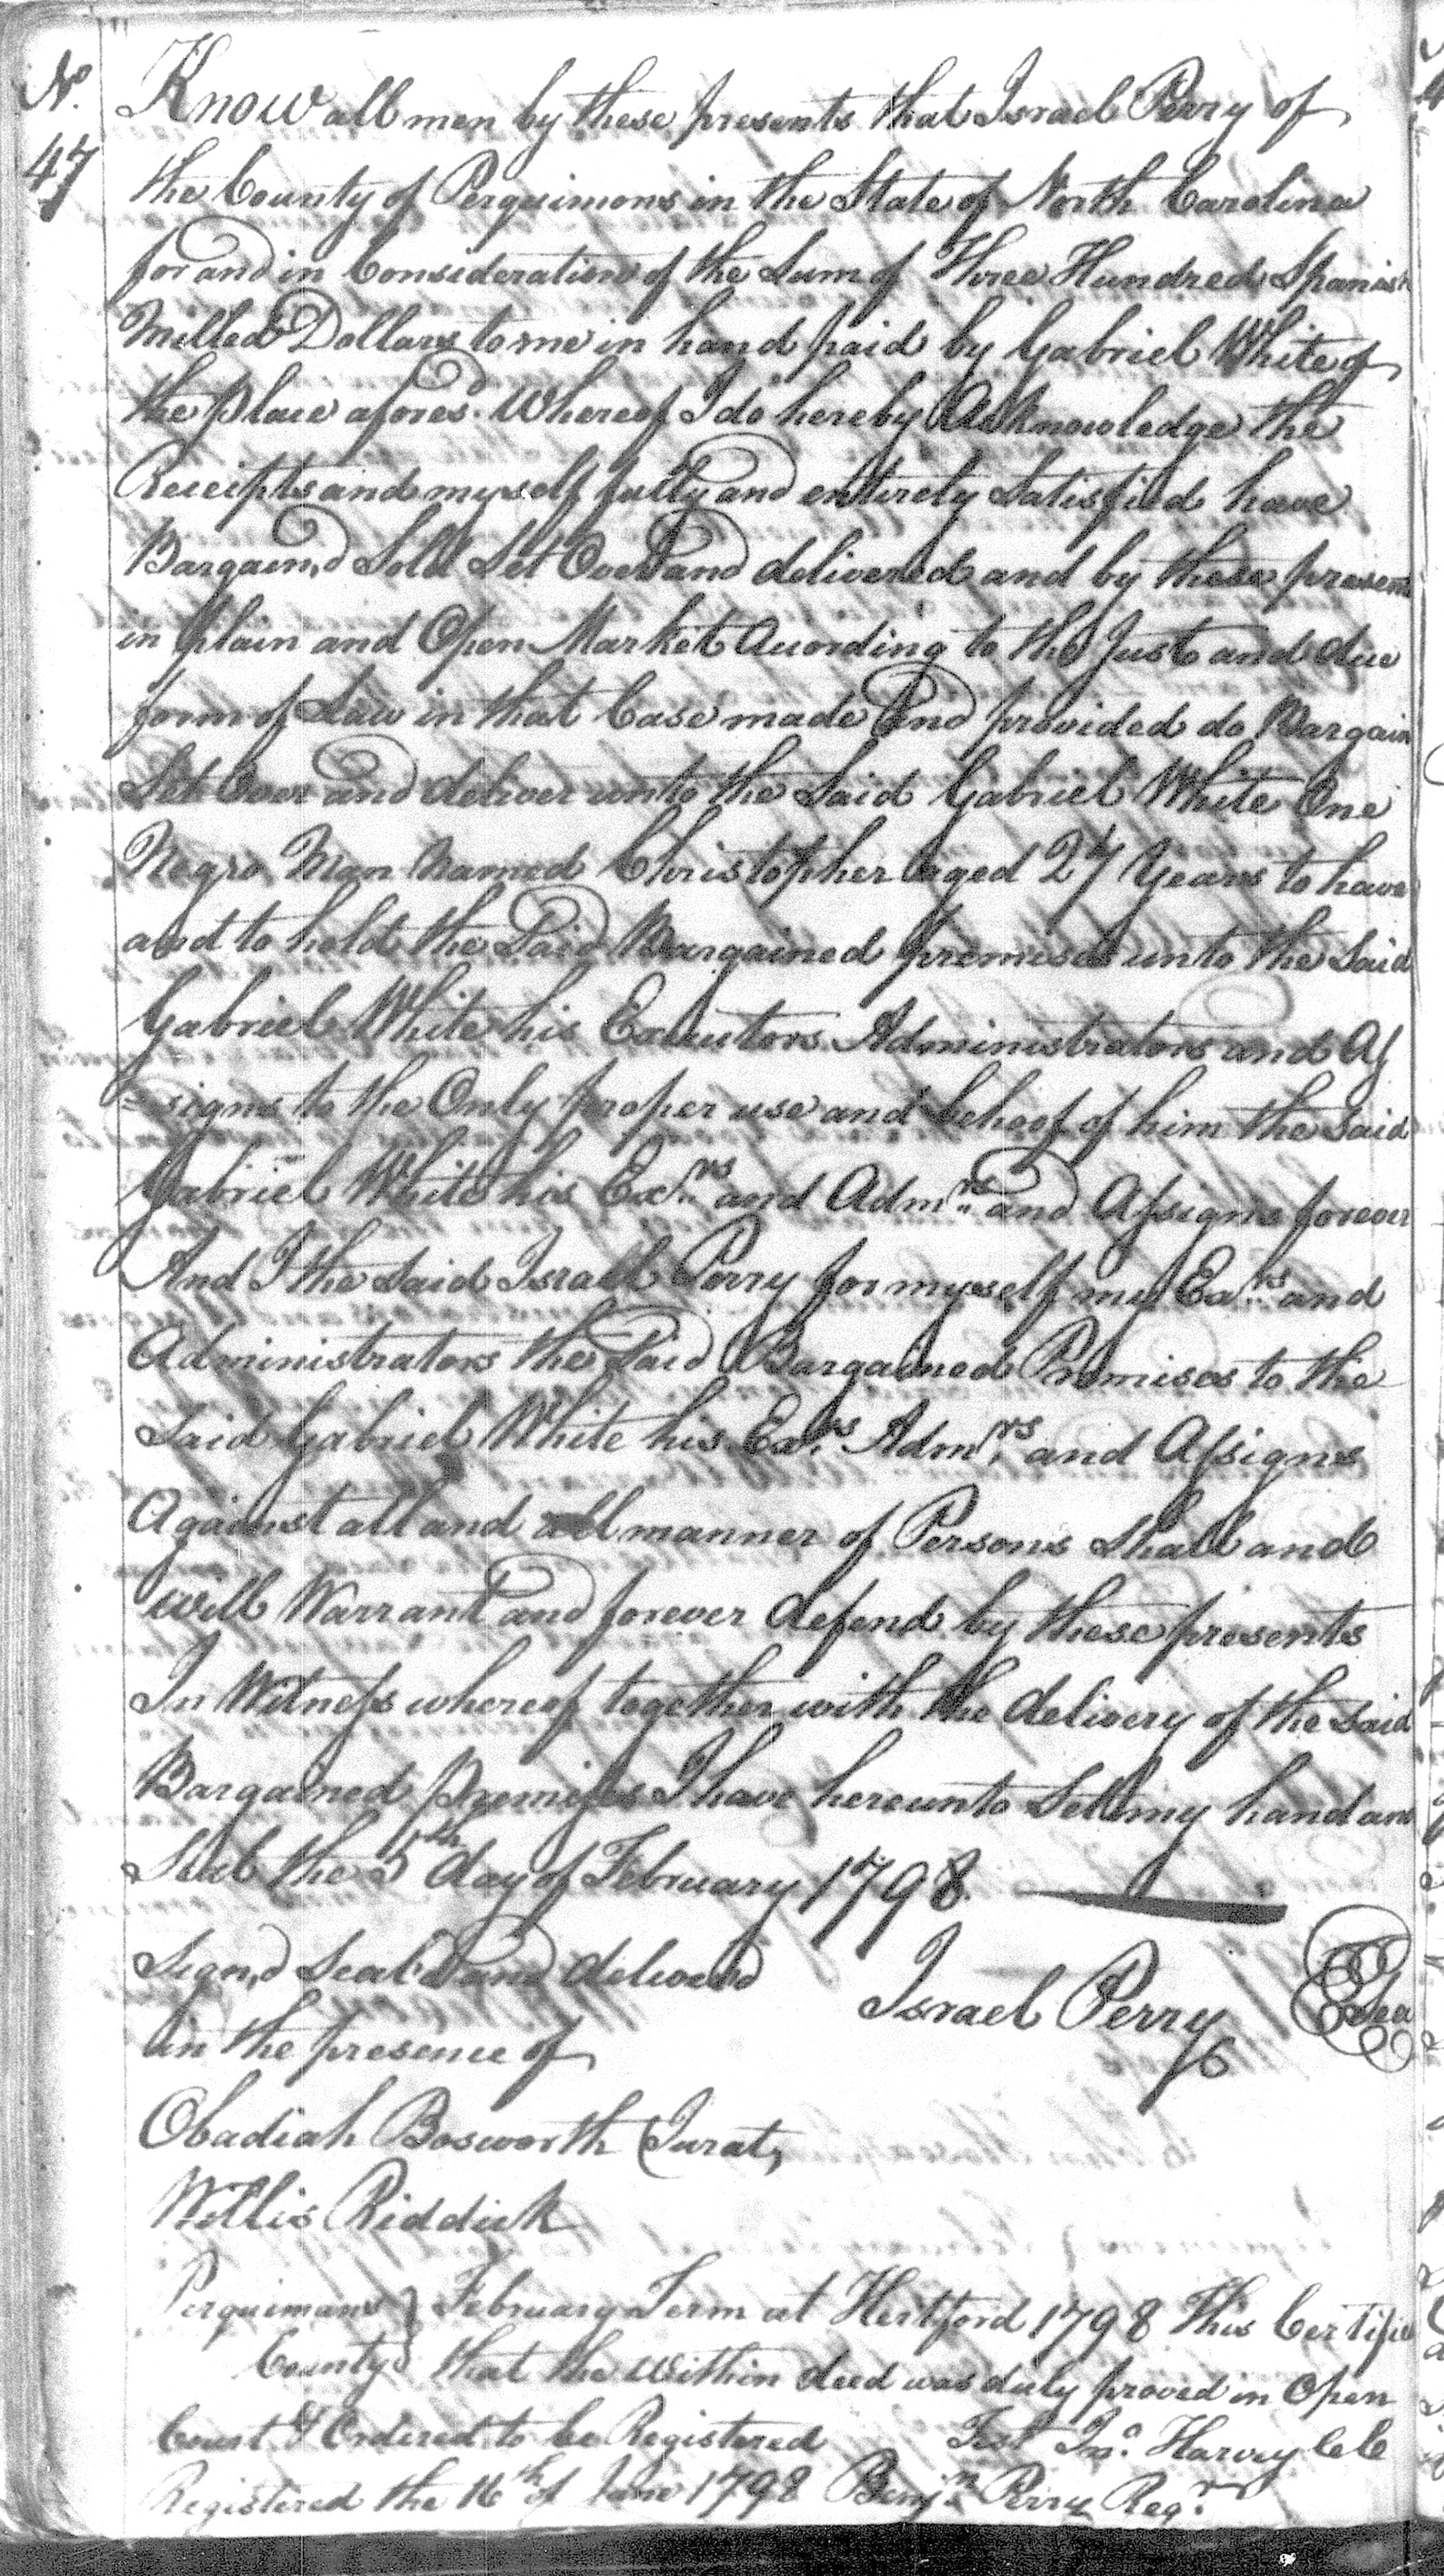 No.
47
Know all men by these presents that Israel Perry of
the County of Perquimons in the State of North Carolina
for and in Consideration of the Sum of Three Hundred Spanish
Milled Dollars to me in hand paid by Gabriel White of
the place afores.d Whereof I do hereby Acknowledge the
Receipts and myself fully and entirely Satisfied have
Bargain,d Sold Set Over and delivered and by these present
in plain and Open Market Acording to the Just and due
form of Law in that Case made And provided do Bargain
Set Over and deliver unto the Said Gabriel White One
Negro Man Named Christopher aged 27 Years to have
and to hold the Said Bargained premises unto the Said
Gabriel White his Executors Administrators and As
=signs to the Only proper use and behoof of him the Said
Gabriel White his Exrs and Admrs and Assigns forever
And I the Said Israel Perry for myself my Exrs and
Administrators the Said Bargained Premises to the
Said Gabriel White his Exrs Admrs and Assigns
Against all and all manner of Persons Shall and
will Warrant and forever defend by these presents
In Witness whereof together with the delivery of the Said
Bargained premises I have hereunto Set my hand and
Seal the 5th day of February 1798.
Sign,d Seal'd and deliverd
in the presence of
Israel Perry Sea
Obadiah Bosworth Jurat,
Willis Riddick
Perquimans } February Term at Hertford 1798 This Certifie
County } that the within deed was duly proved in Open
Court & Ordered to be Registered Test Jno. Harvey CC
Registered the 16th of June 1798 Benjn Perry Regr